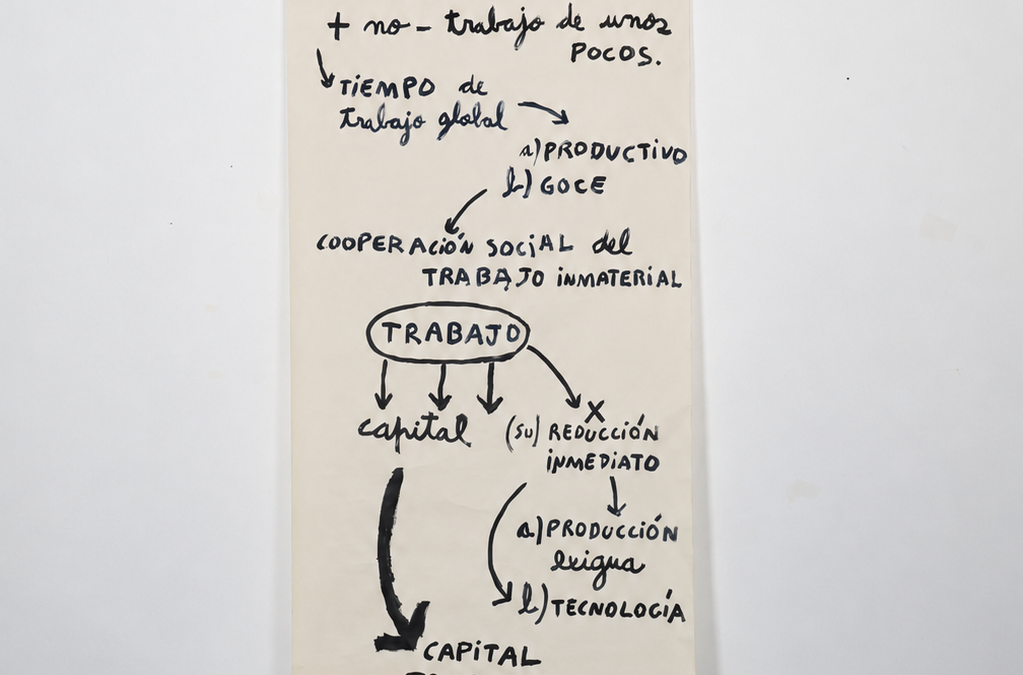 + no - trabajo de unos
POCOS.
TIEMPO de
trabajo global
a) PRODUCTIVO
b) GOCE
COOPERACIÓN SOCIAL del
TRABAJO INMATERIAL
TRABAJO
capital
X
(su) REDUCCIÓN
INMEDIATO
a) PRODUCCIÓN
exigua
b) TECNOLOGÍA
CAPITAL